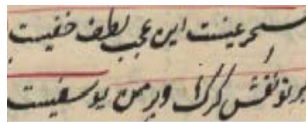 سحر عینست این عجب لطف خفیست
بر تو نقش گرگ و بر من یوسفیست